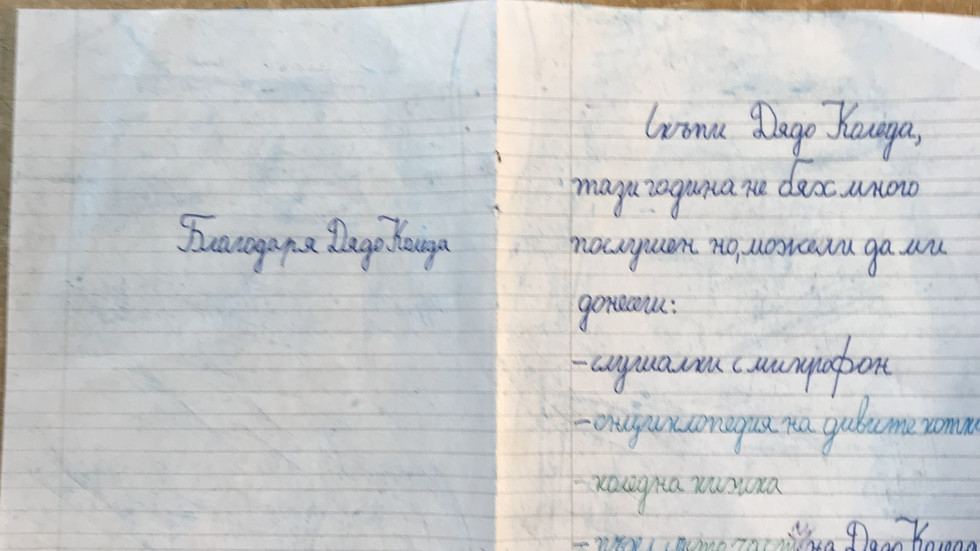 Благодаря Дядо Коледа
Скъпи Дядо Коледа,
тази година не бях много
послушен но, можели да ми
донесеш:
- слушалки с микрофон
- енциклопедия на дивите котки
- коледна книжка
- на Дядо Коледа